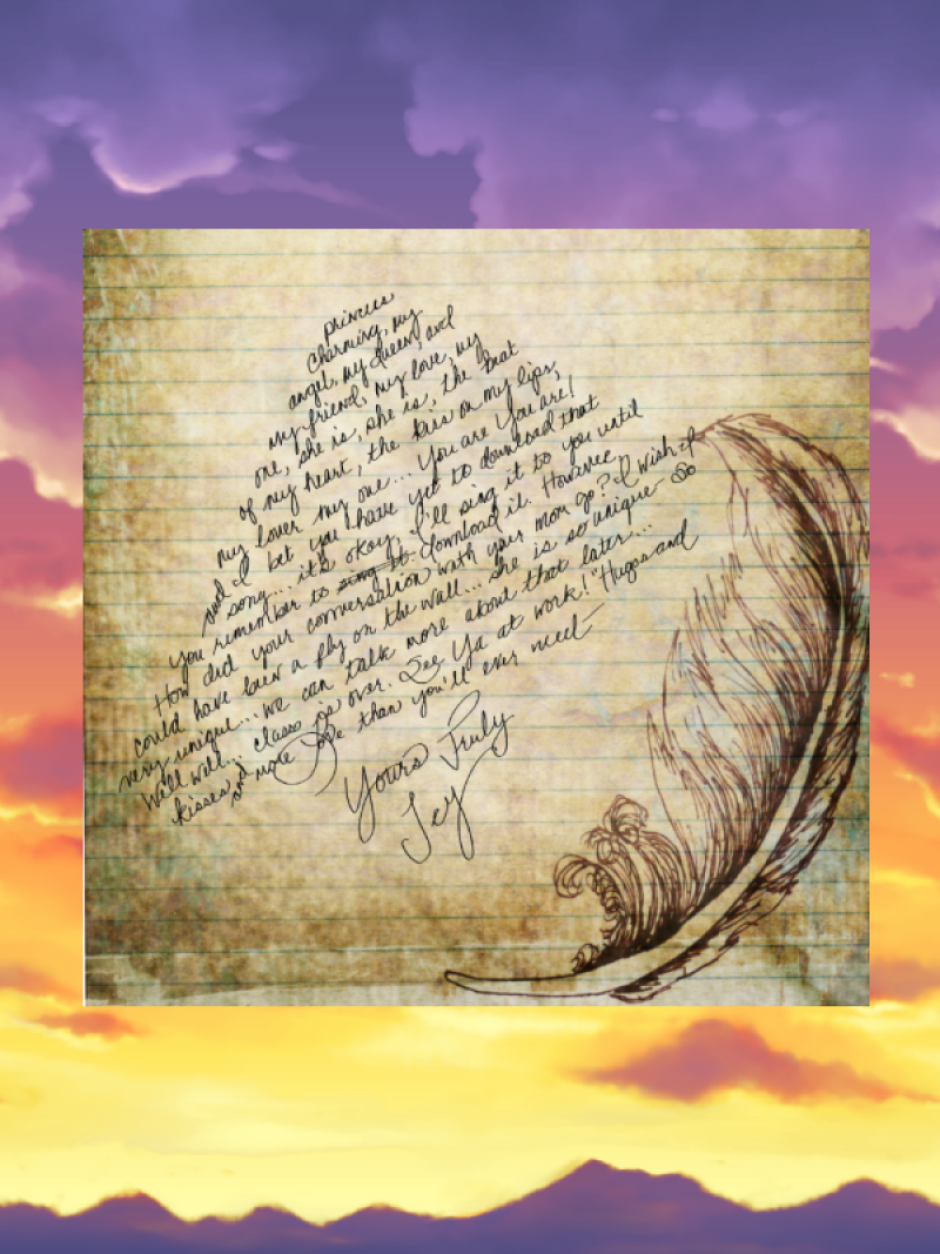 princess
Charming, my
angel, my Queen, and
my friend, my love, my
one, she is, she is, the beat
of my heart, the kiss on my lips,
my lover my one... You are You are!
and I bet you have yet to download that
song... it's okay, I'll sing it to you until
you remember to sing it download it.
How did your conversation with your mom go? I wish I
could have been a fly on the wall... she is so unique so
very unique... we can talk more about that later...
Well well... class is over. See Ya at work! "Hugs and
kisses and more Love than you'll ever need
Yours Truly